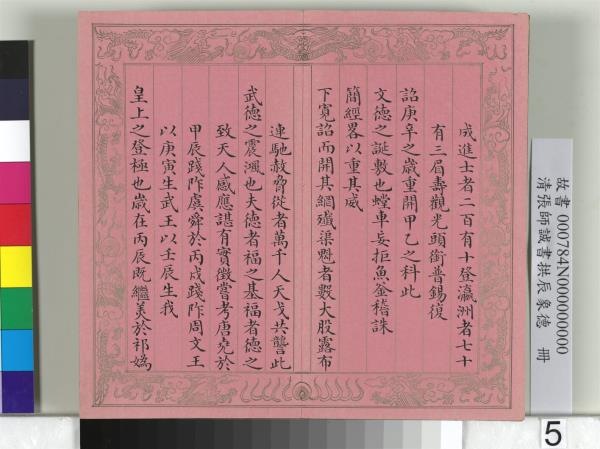 成進士者二百有十登瀛洲者七十
有三眉壽觀光頭銜普錫復
詔庚辛之歲重開甲乙之科此
文德之誕敷也螳車妄拒魚釜稽誅
簡經畧以重其威
下寬詔而開其網殲渠魁者數大股露布
連馳赦脅從者萬千人天戈共讋此
武德之震濯也夫德者福之基福者德之
致天人感應諶有實徵嘗考唐堯於
甲辰踐阼虞舜於丙戌踐阼周文王
以庚寅生武王以壬辰生我
皇上之登極也歲在丙辰既繼美於祁媯
故書 000784N000000000
清張師誠書拱辰象德 冊
5